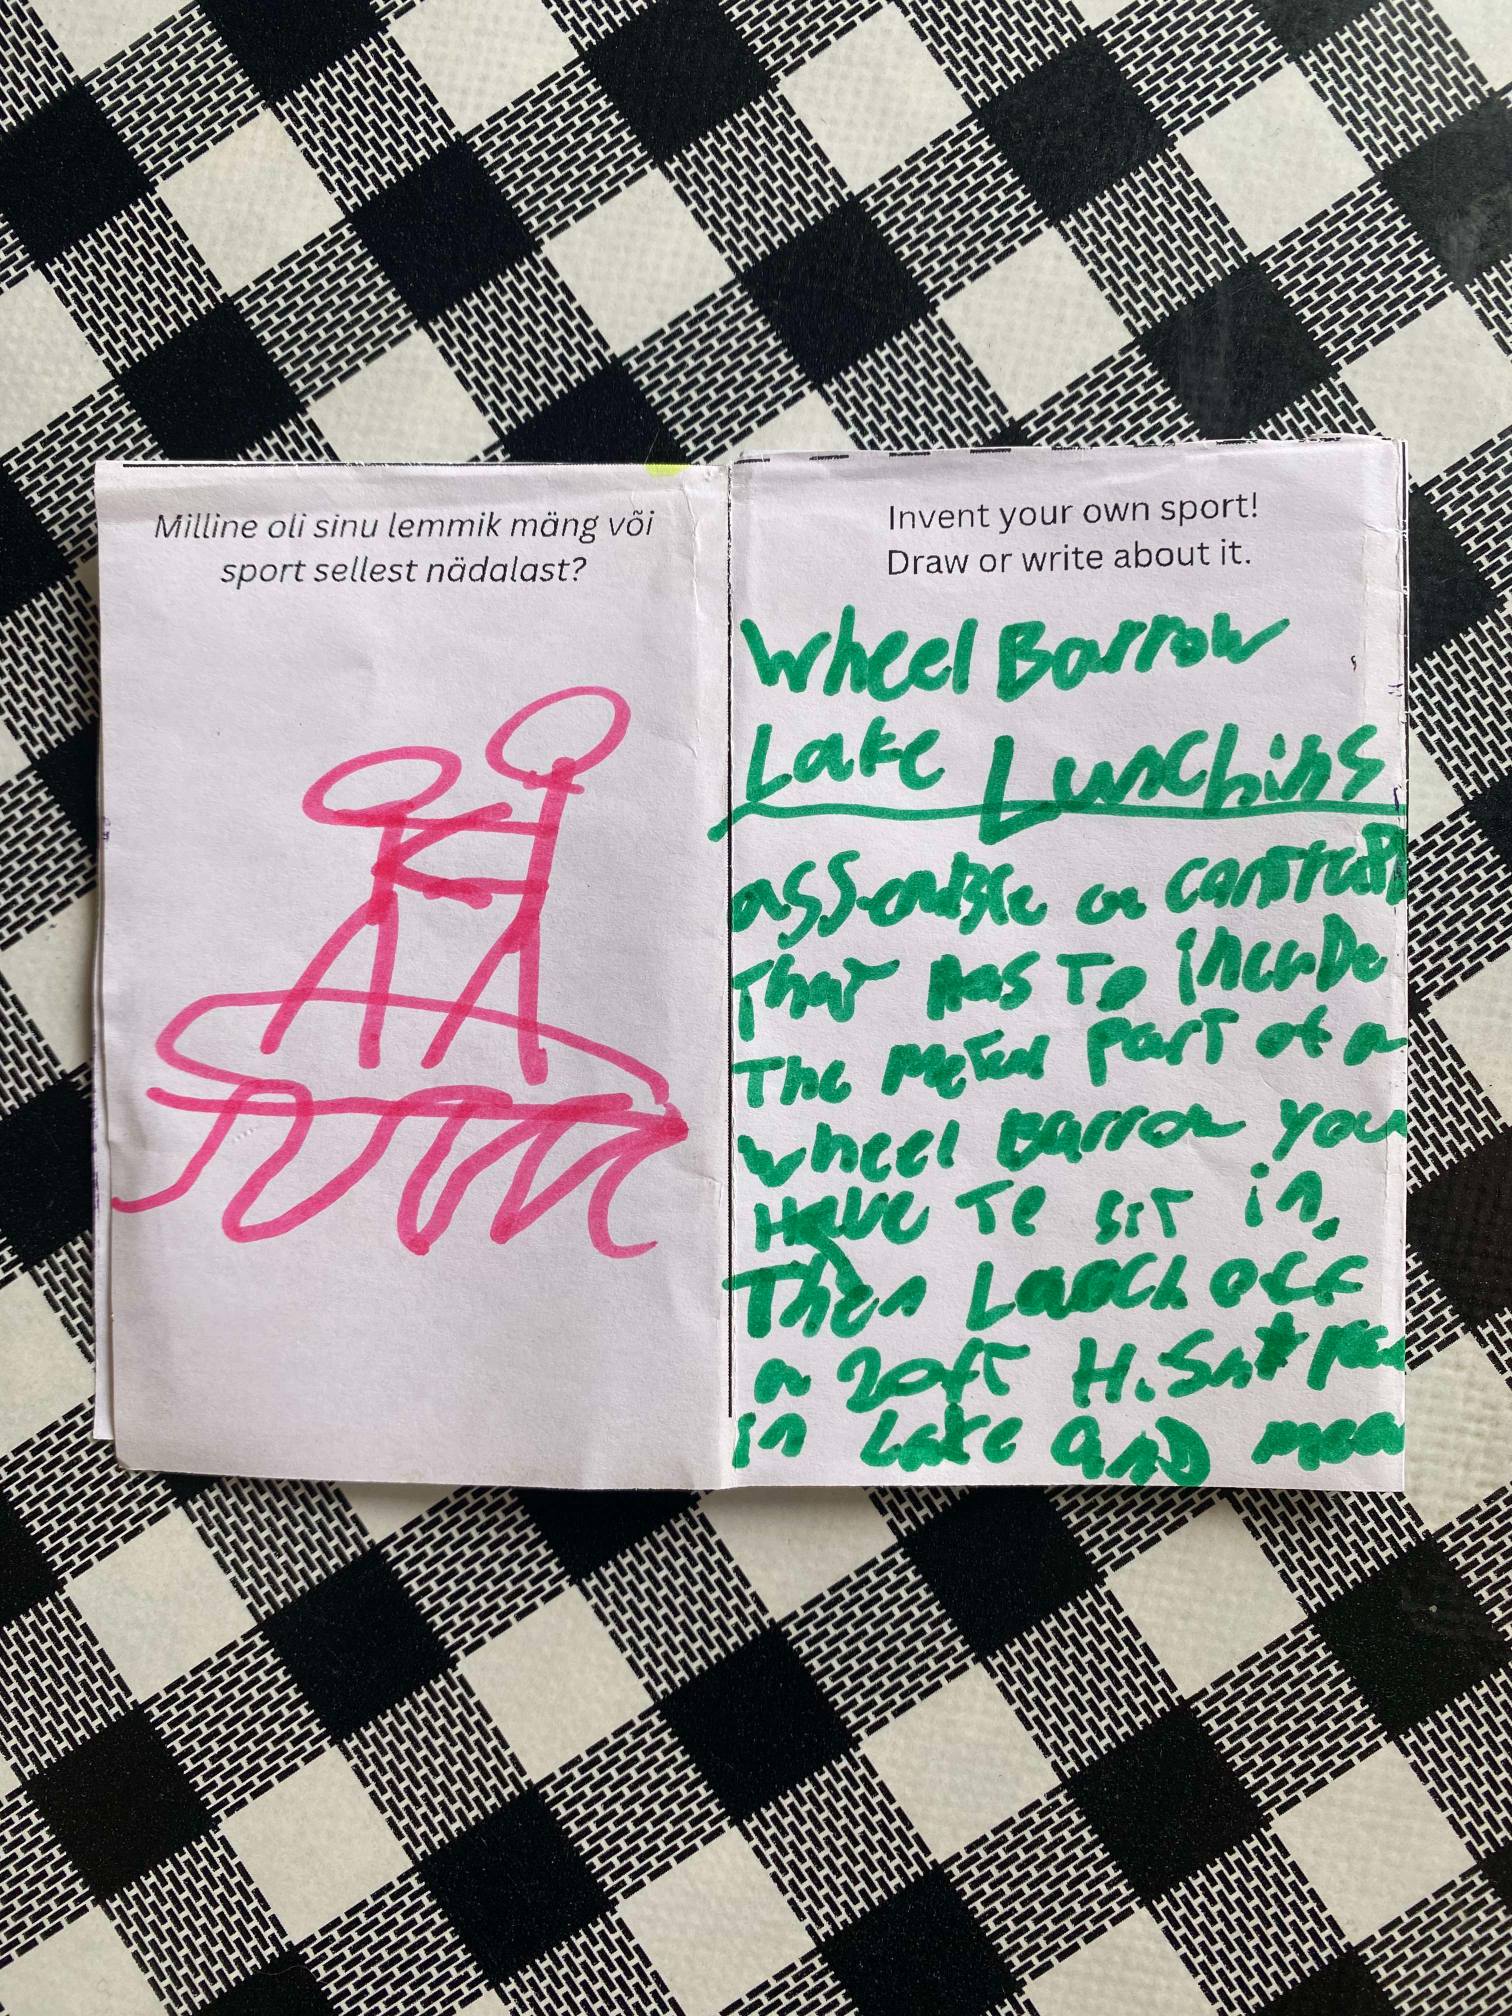 Milline oli sinu lemmik mäng või
sport sellest nädalast?
Invent your own sport!
Draw or write about it.
Wheel Barrow
Lake
assemble a
That Has To include
The Metal part of a
wheel Barrow you
Have To sit in.
Then off
a 20ft H.
in Lake and